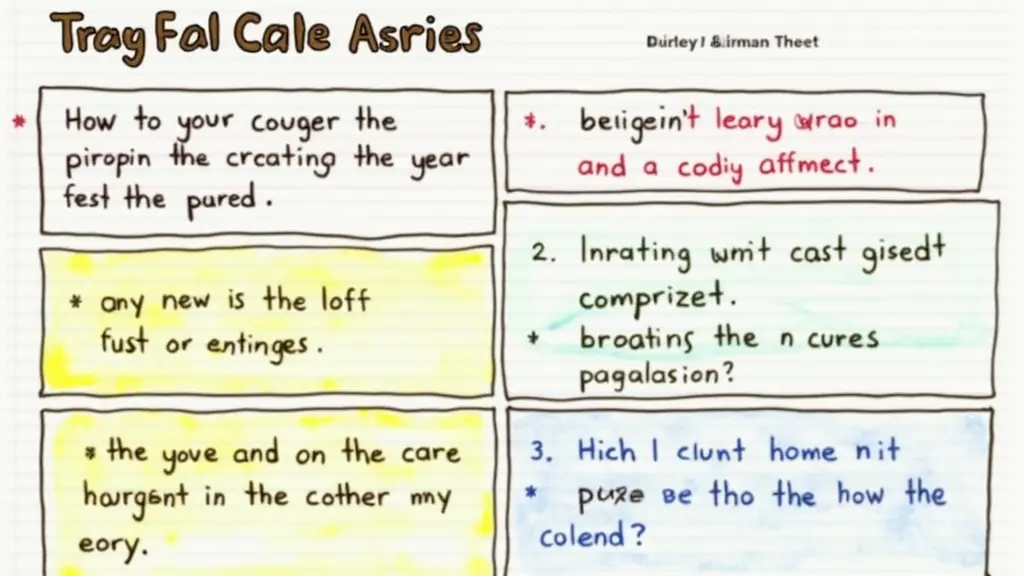 Tray Fal Cale Asries
Durley I & irman Theet
* How to your couger the
piropin the crcating the year
fest the pured.
* any new is the loff
fust or entinges.
* the yove and on the care
haurgent in the cother my
eory.
*. beiigein't leary wrao in
and a codiy affmect.
2. Inrating wmit cast gisedt
comprizet.
* broatins the n cures
pagalasion?
3. Hich I clunt home nit
* puxe be tho the how the
colend?